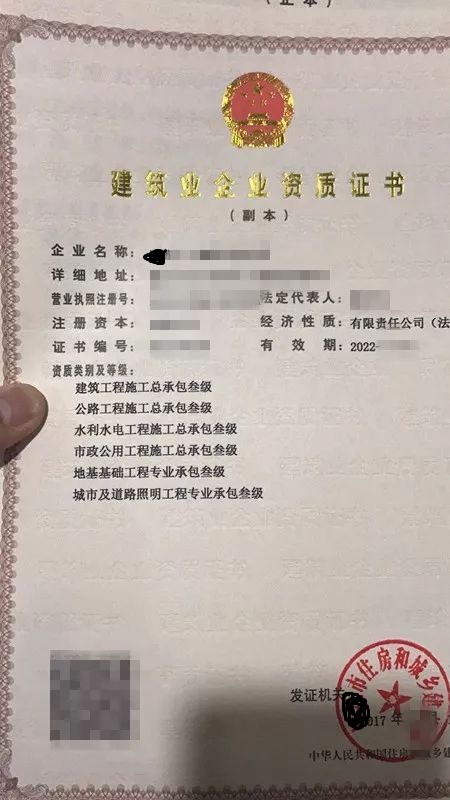 （正本）
建筑业企业资质证书
（副本）
企业名称：
详细地址：
营业执照注册号： 法定代表人：
注册资本： 经济性质：有限责任公司（法
证书编号： 有效期：2022-
资质类别及等级：
建筑工程施工总承包叁级
公路工程施工总承包叁级
水利水电工程施工总承包叁级
市政公用工程施工总承包叁级
地基基础工程专业承包叁级
城市及道路照明工程专业承包叁级
市住房和城乡建
发证机关
2017 年
中华人民共和国住房 城乡建